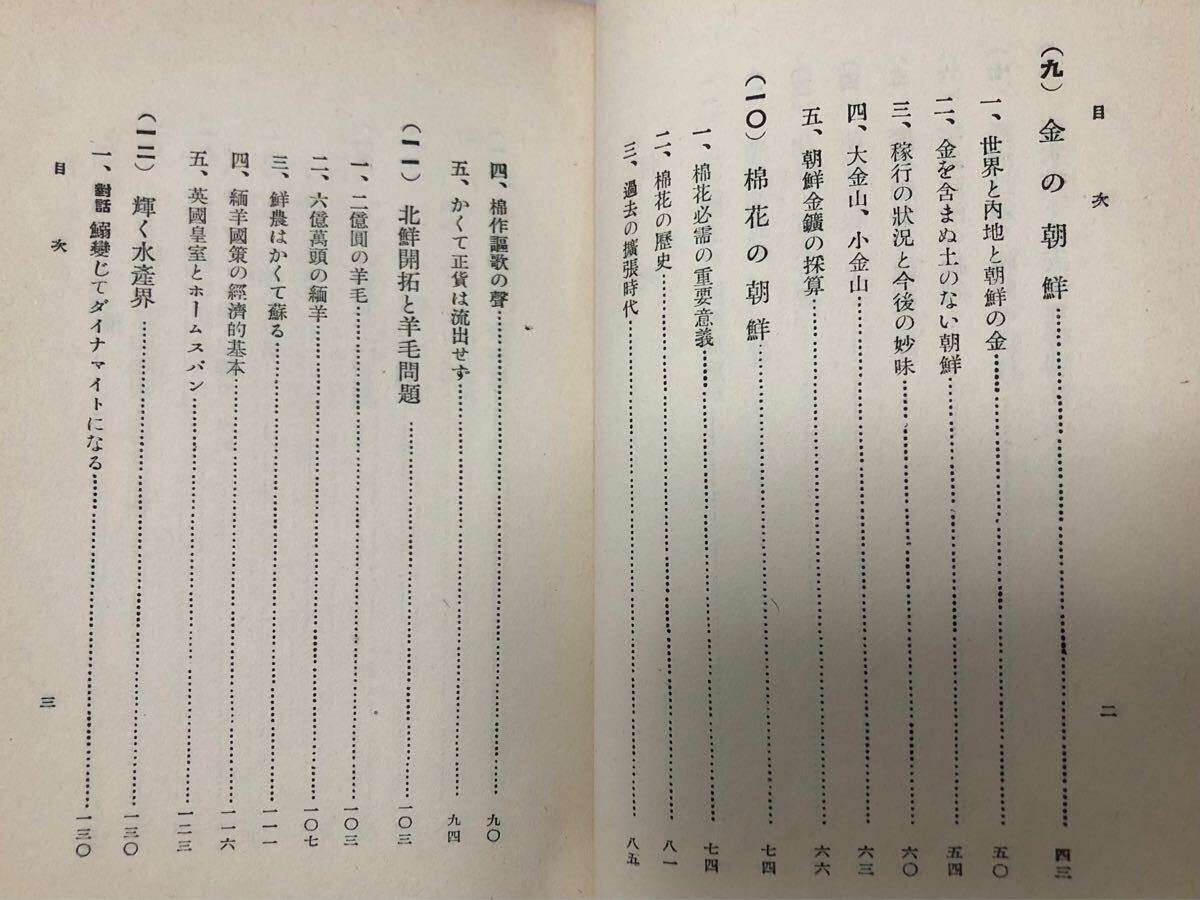 目次
二
(九) 金の朝鮮……四三
一、世界と內地と朝鮮の金……五〇
二、金を含まぬ土のない朝鮮……五四
三、稼行の狀況と今後の妙味……六〇
四、大金山、小金山……六三
五、朝鮮金鑛の採算……六六
(一〇) 棉花の朝鮮……七四
一、棉花必需の重要意義……七四
二、棉花の歷史……八一
三、過去の擴張時代……八五
四、棉作謳歌の聲……九〇
五、かくて正貨は流出せず……九四
(一一) 北鮮開拓と羊毛問題……一〇三
一、二億圓の羊毛……一〇三
二、六億萬頭の緬羊……一〇七
三、鮮農はかくて蘇る……一一一
四、緬羊國策の經濟的基本……一一六
五、英國皇室とホームスパン……一二三
(一二) 輝く水產界……一三〇
一、對話 鰯變じてダイナマイトになる……一三〇
目次
三